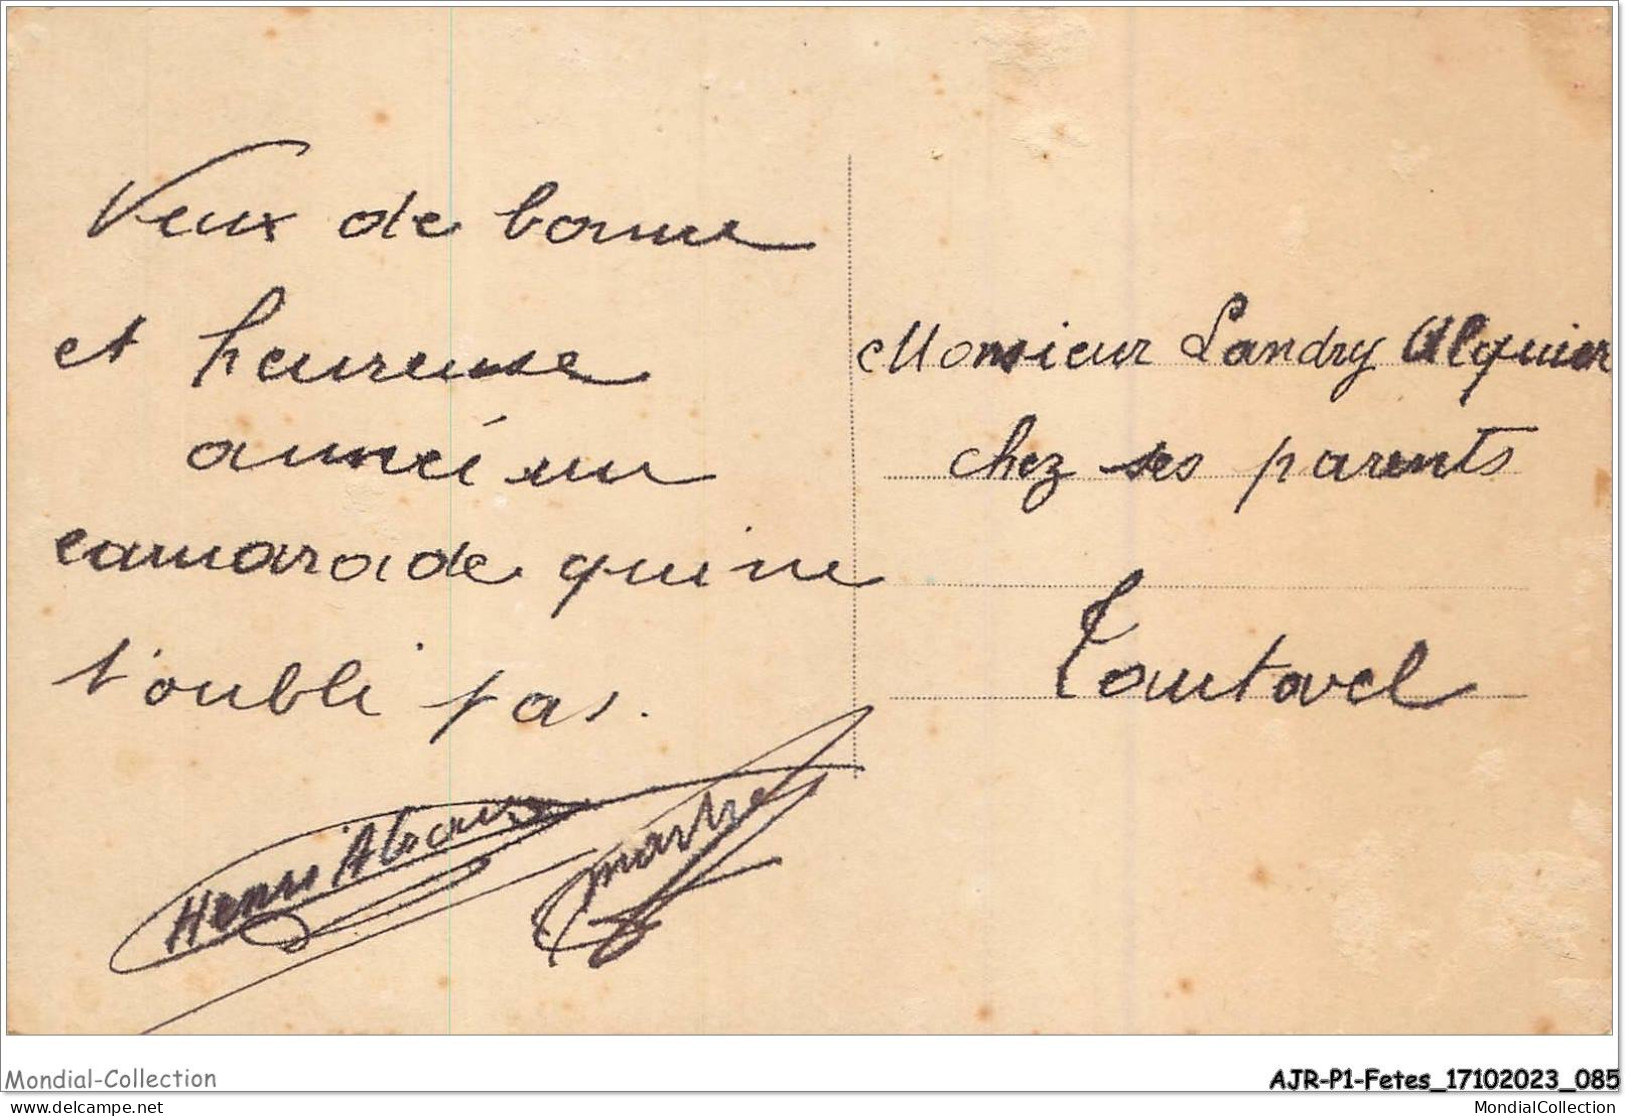 Veux de bonne
et heureuse
année un
camarade qui ne
t'oubli pas.
Henri
Monsieur Landry Alquier
chez ses parents
Tautavel
Mondial-Collection
AJR-P1-Fetes_17102023_085
delcampe.net
MondialCollection